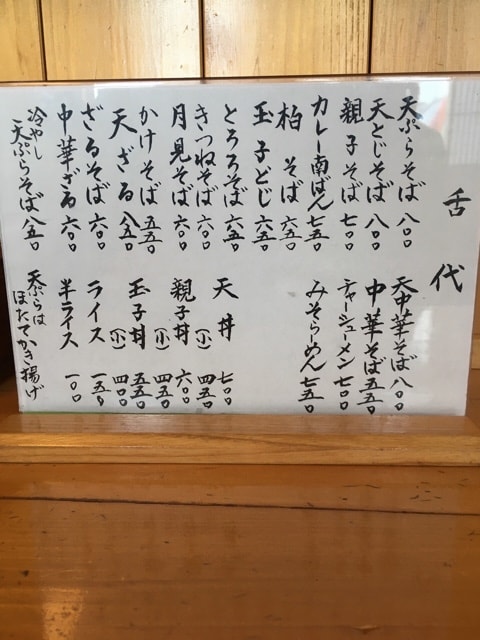 舌代
天ぷらそば 八〇〇
天とじそば 八〇〇
親子そば 七〇〇
カレー南ばん 七五〇
柏そば 六五〇
玉子とじ 六五〇
とろろそば 六五〇
きつねそば 六〇〇
月見そば 六〇〇
かけそば 五五〇
天ざる 八五〇
ざるそば 六〇〇
中華ざる 六〇〇
冷やし天ぷらそば 八五〇
天中華そば 八〇〇
中華そば 五五〇
チャーシューメン 七〇〇
みそらーめん 七五〇
天丼 七〇〇
(小) 四五〇
親子丼 六〇〇
(小) 四五〇
玉子丼 五五〇
(小) 四〇〇
ライス 一五〇
半ライス 一〇〇
天ぷらは
ほたてかき揚げ